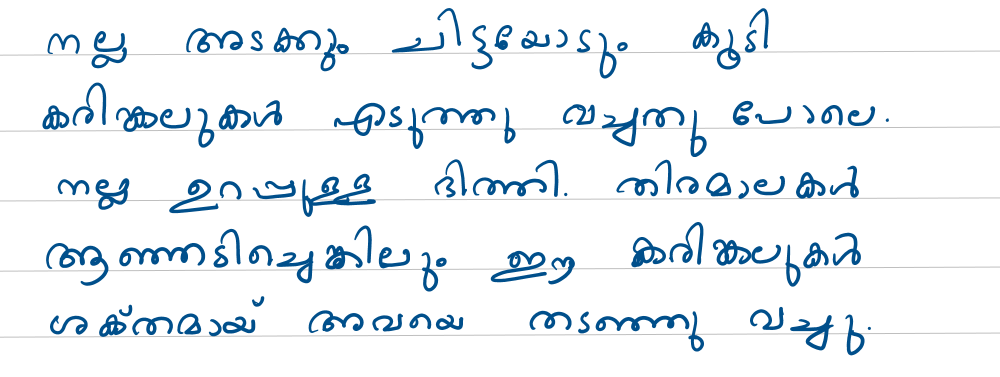 നല്ല അടക്കും ചിട്ടയോടും കൂടി
കരിങ്കലുകൾ എടുത്തു വച്ചതു പോലെ.
നല്ല ഉറപ്പുള്ള ഭിത്തി. തിരമാലകൾ
ആഞ്ഞടിച്ചെങ്കിലും ഈ കരിങ്കലുകൾ
ശക്തമായ് അവയെ തടഞ്ഞു വച്ചു.